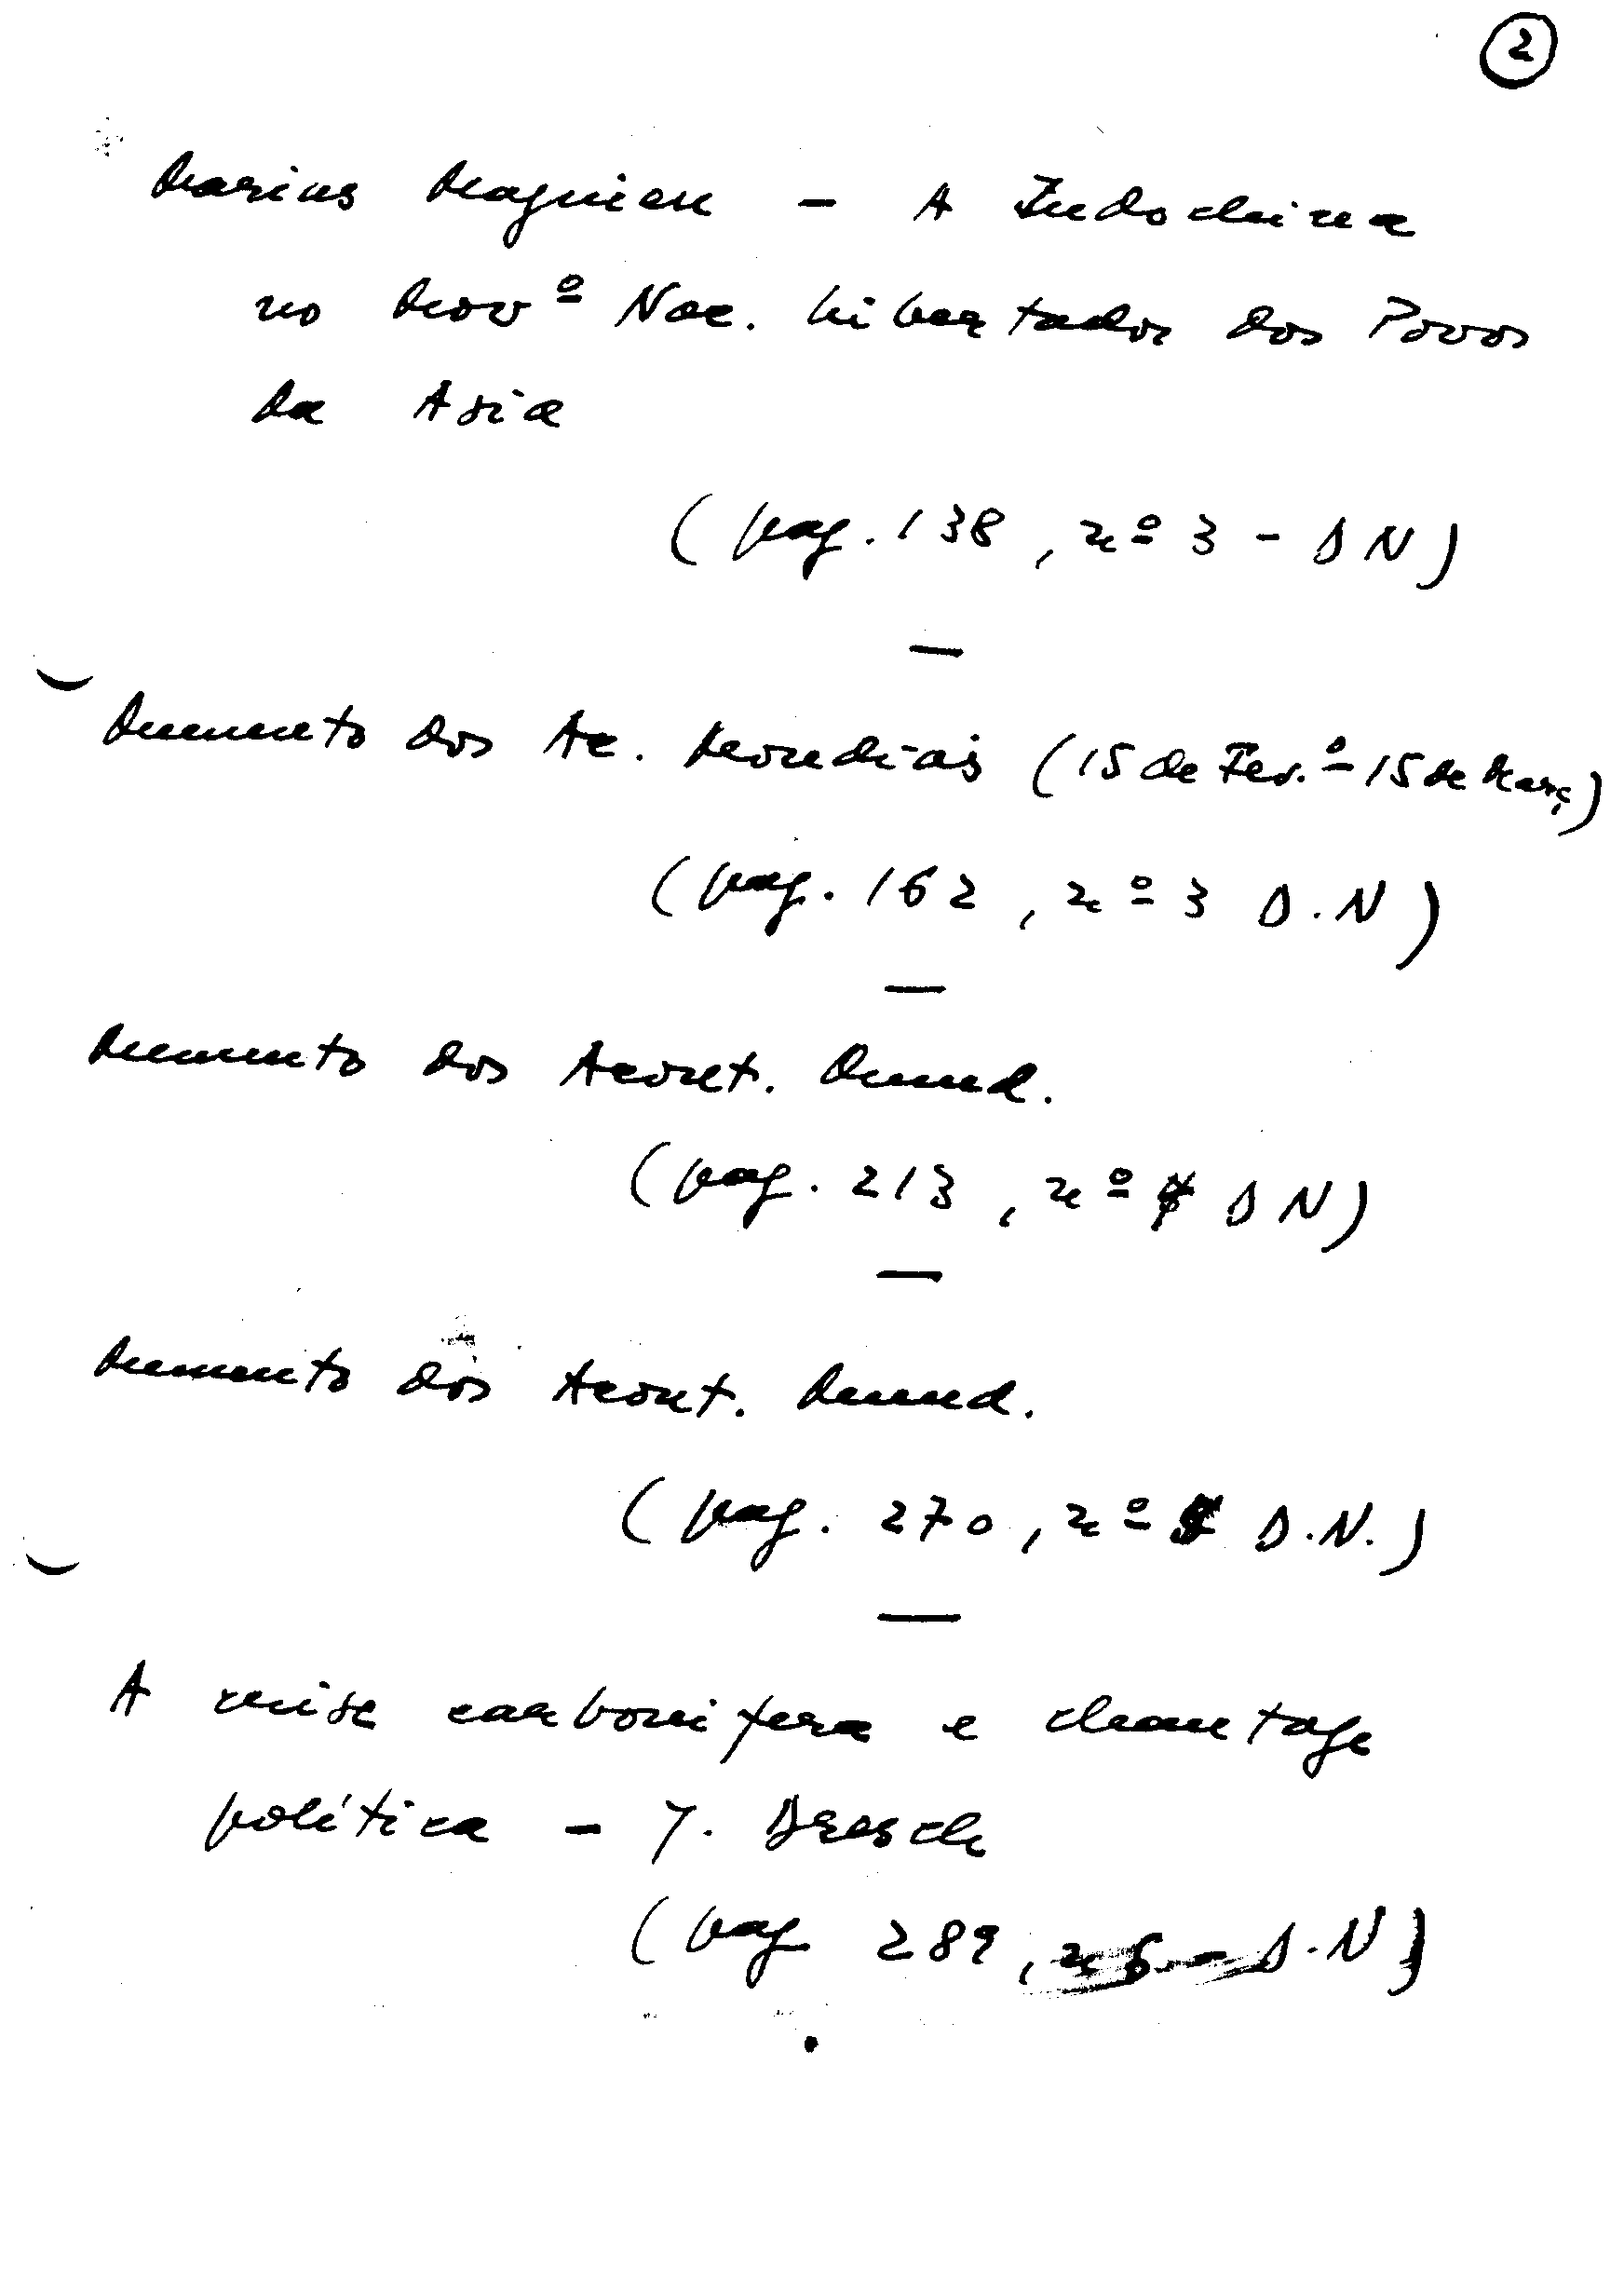 2
Marius Magnien - A Indochina
no Movº Nac. Libertador dos Povos
da Asia
(pag. 138, nº 3 - D N)
Memento dos Ac. Mondiais (15 de Fev.º - 15 de Març)
(pag. 162, nº 3 D.N)
Memento dos Acont. Mund.
(pag. 213, nº 4 D N)
Memento dos Acont. Mund.
(pag. 270, nº D.N.)
A crise carbonifera e chantage
política - J. Dresch
(pag 289, nº 6 - D.N)